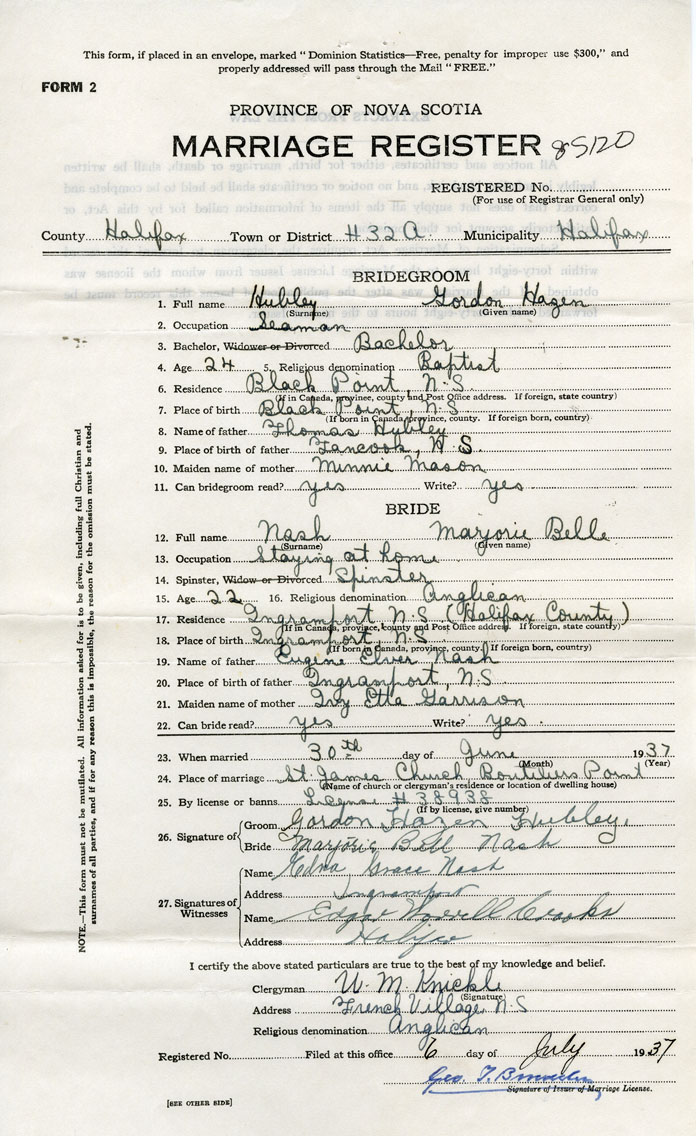 This form, if placed in an envelope, marked "Dominion Statistics—Free, penalty for improper use $300," and
properly addressed will pass through the Mail "FREE."
FORM 2
PROVINCE OF NOVA SCOTIA
MARRIAGE REGISTER 85120
REGISTERED No.
(For use of Registrar General only)
County Halifax Town or District #32A Municipality Halifax
BRIDEGROOM
1. Full name Hubley Gordon Hazen
(Surname) (Given name)
2. Occupation Seaman
3. Bachelor, Widower or Divorced Bachelor
4. Age 24 5. Religious denomination Baptist
6. Residence Black Point, N.S.
(If in Canada, province, county and Post Office address. If foreign, state country)
7. Place of birth Black Point, N.S.
(If born in Canada, province, county. If foreign born, country)
8. Name of father Thomas Hubley
9. Place of birth of father Tancook, N.S.
10. Maiden name of mother Minnie Mason
11. Can bridegroom read? yes Write? yes
BRIDE
12. Full name Nash Marjorie Belle
(Surname) (Given name)
13. Occupation Staying at home
14. Spinster, Widow or Divorced Spinster
15. Age 22 16. Religious denomination Anglican
17. Residence Ingramport N.S. (Halifax County)
(If in Canada, province, county and Post Office address. If foreign, state country)
18. Place of birth Ingramport, N.S.
(If born in Canada, province, county. If foreign born, country)
19. Name of father Eugene Elver Nash
20. Place of birth of father Ingramport, N.S.
21. Maiden name of mother Ivy Etta Garrison
22. Can bride read? yes Write? yes.
23. When married 30th day of June 1937
(Month) (Year)
24. Place of marriage St. James Church Boutiliers Point
(Name of church or clergyman's residence or location of dwelling house)
25. By license or banns License #38938
(If by license, give number)
26. Signature of Groom Gordon Hazen Hubley.
Bride Marjorie Bell Nash
27. Signatures of Witnesses
Name Edna Grace Nash
Address Ingramport
Name Edgar Crooks
Address Halifax
I certify the above stated particulars are true to the best of my knowledge and belief.
Clergyman W. M. Knickle
(Signature)
Address French Village N.S
Religious denomination Anglican
Registered No. Filed at this office 6 day of July 1937
Geo. T.
Signature of Issuer of Marriage License.
[SEE OTHER SIDE]
NOTE.—This form must not be mutilated. All information asked for is to be given, including full Christian and
surnames of all parties, and if for any reason this is impossible, the reason for the omission must be stated.